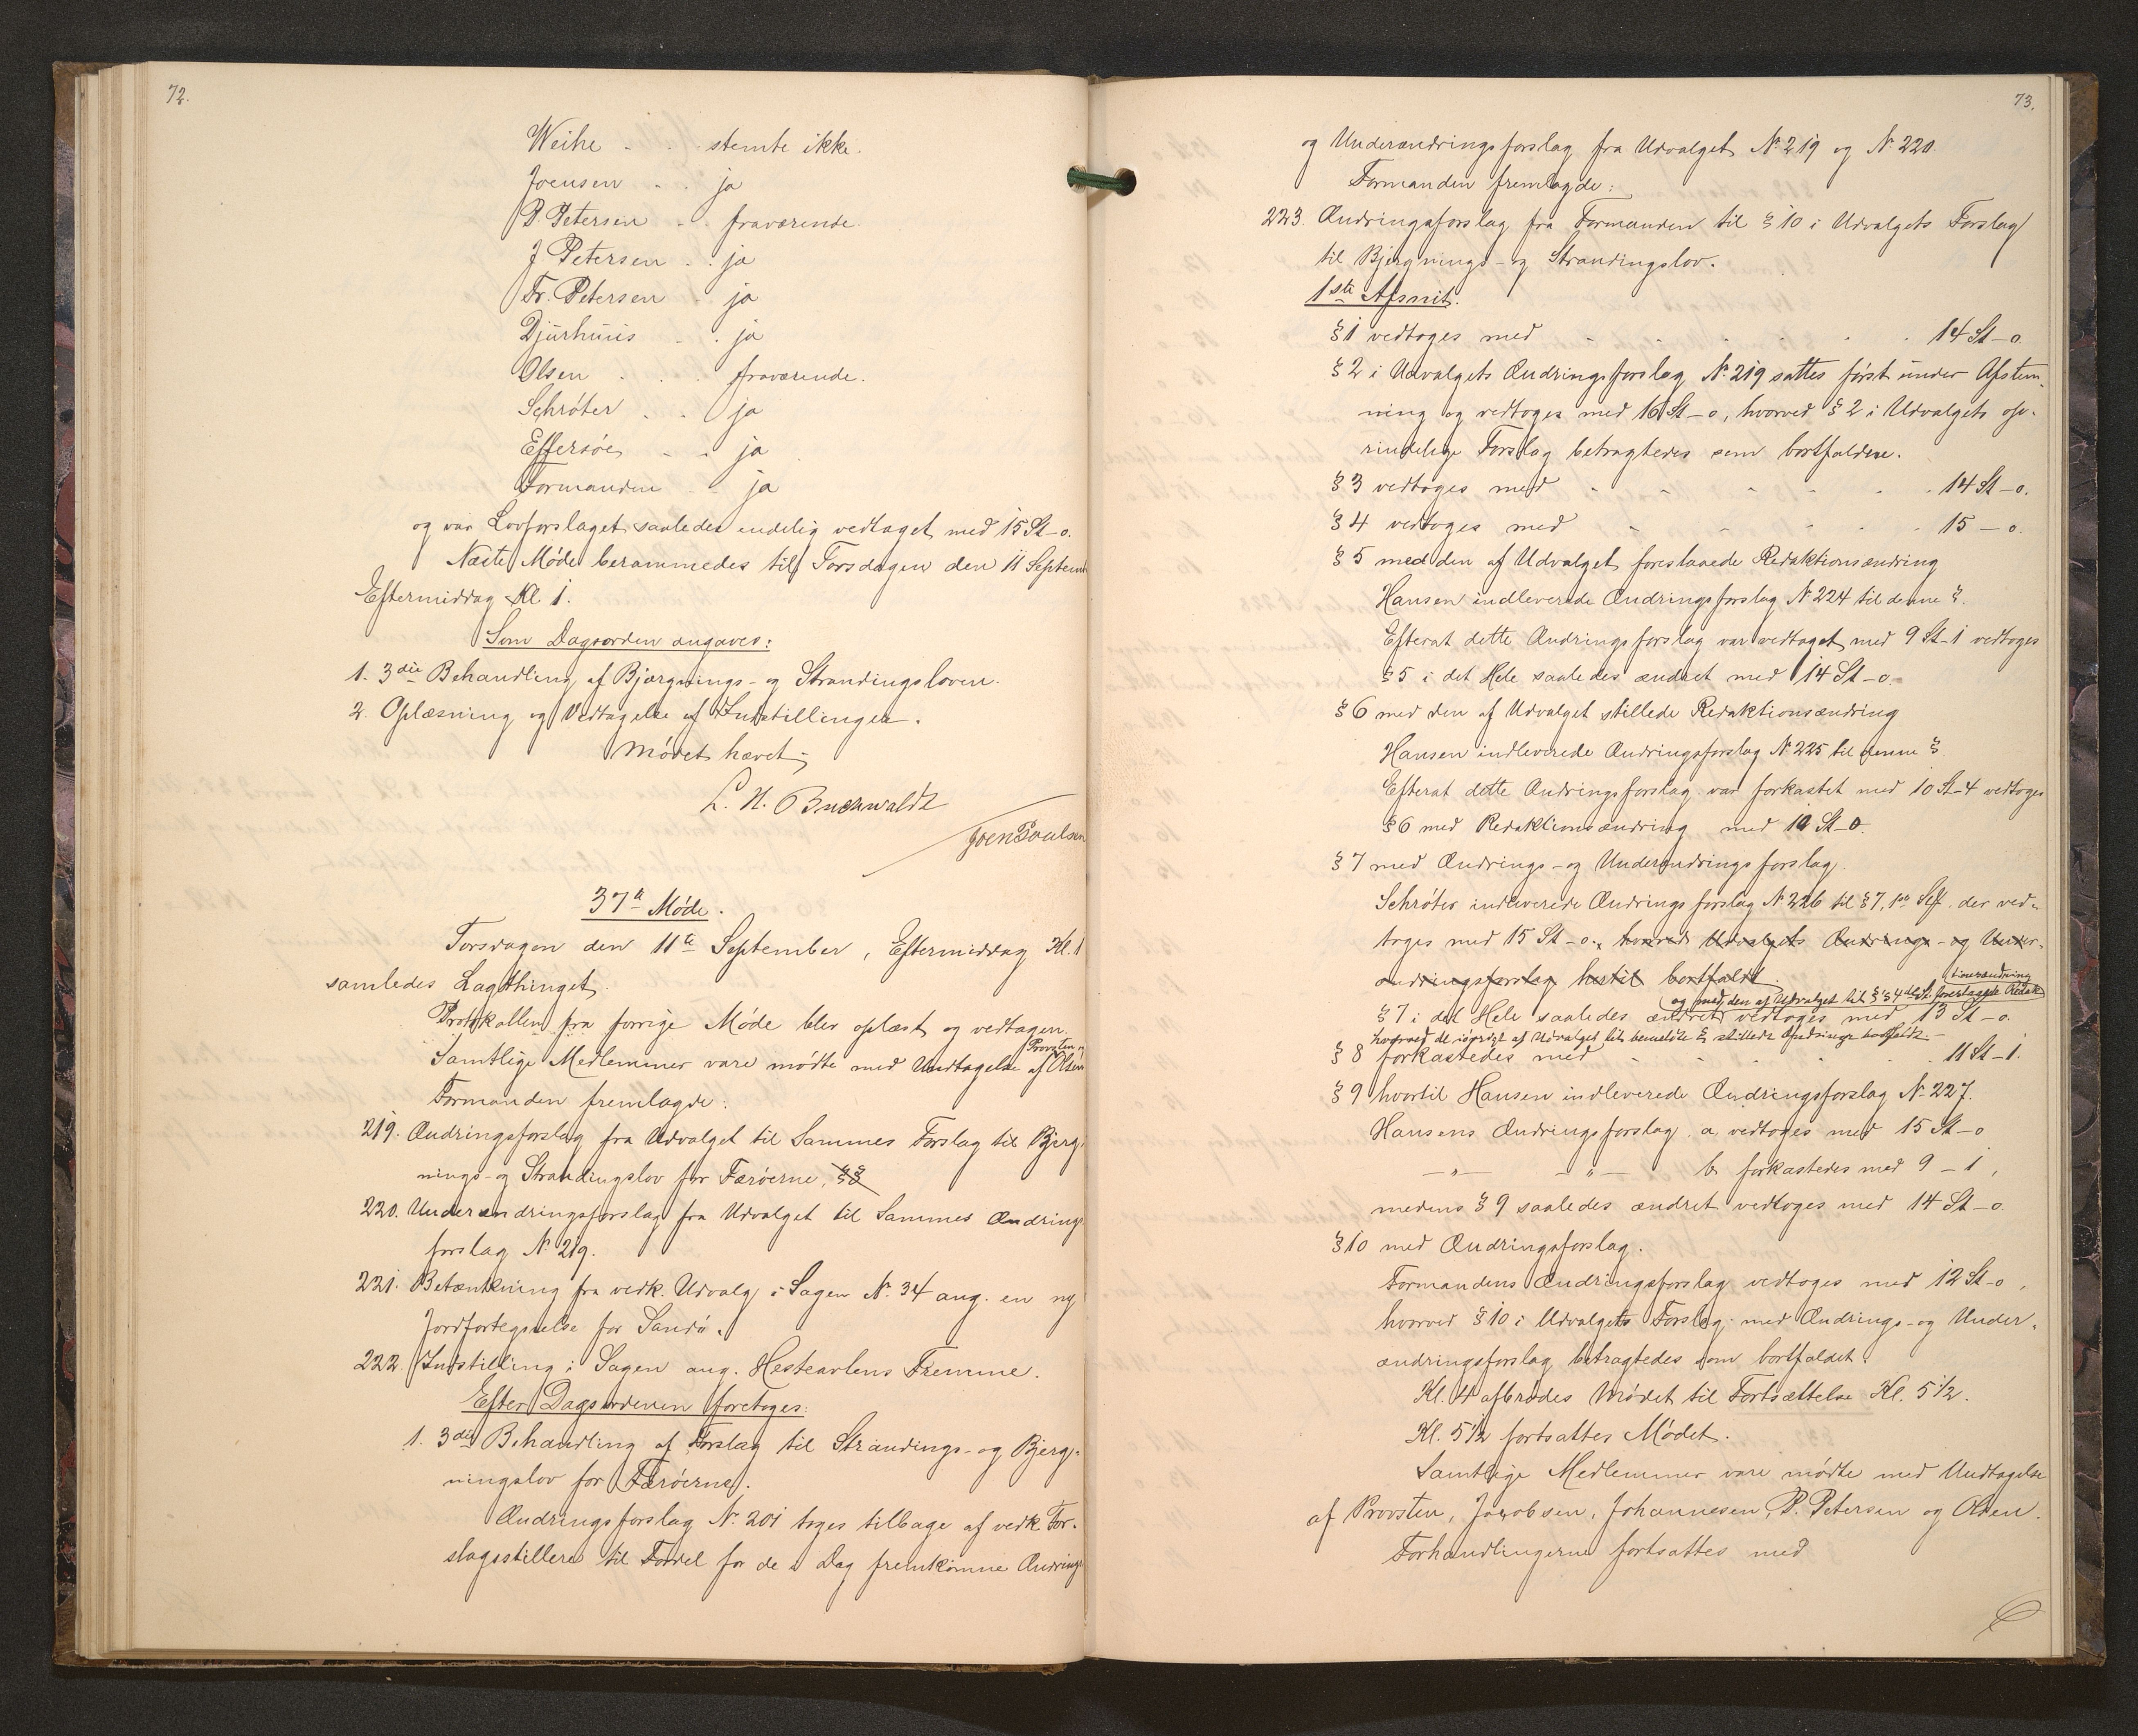 72.
Weihe - - - stemte ikke.
Joensen - - ja
P Petersen - - fraværende.
J Petersen - - ja
Fr. Petersen - ja
Djurhuus - - ja
Olsen - - - fraværende.
Schröter - - ja
Effersøe - - ja
Formanden - - ja
og var Lovforslaget saaledes endelig vedtaget med 15 St-0.
Næste Møde berammedes til Torsdagen den 11 Septem
Eftermiddag Kl. 1.
Som Dagsorden angaves:
1. 3die Behandling af Bjærgnings- og Strandingsloven.
2. Oplæsning og Vedtagelse af Indstillinger.
Mødet hævet
L. H. Buchwaldt
Joen Poulsen
37te Møde.
Torsdagen den 11te September, Eftermiddag Kl. 1
samledes Lagthinget.
Protokollen fra forrige Møde blev oplæst og vedtagen.
Provsten og
Samtlige Medlemmer vare mødte med Undtagelse af Olsen
Formanden fremlagde:
219. Ændringsforslag fra Udvalget til Sammes Forslag til Bjerg-
nings- og Strandingslov for Færøerne, §§
220. Underændringsforslag fra Udvalget til Sammes Ændrings
forslag N. 219.
221. Betænkning fra vedk. Udvalg i Sagen N. 34 ang. en ny
Jordfortegnelse for Sandø.
222. Indstilling i Sagen ang. Hesteavlens Fremme.
Efter Dagsordenen foretoges:
1. 3die Behandling af Forslag til Strandings- og Bjerg-
ningslov for Færøerne.
Ændringsforslag N. 201 toges tilbage af vedk For-
slagsstillere til Fordel for de i Dag fremkomne Ændrings
73.
og Underændringsforslag fra Udvalget N. 219 og N. 220.
Formanden fremlagde:
223. Ændringsforslag fra Formanden til § 10 i Udvalgets Forslag
til Bjergnings- og Strandingslov.
1ste Afsnit.
§ 1 vedtoges med - - - - - 14 St-0.
§ 2 i Udvalgets Ændringsforslag N. 219 sattes først under Afstem-
ning og vedtoges med 16 St-0, hvorved § 2 i Udvalgets op-
rindelige Forslag betragtedes som bortfalden.
§ 3 vedtoges med - - - - - 14 St-0.
§ 4 vedtoges med - - - - - 15-0.
§ 5 med den af Udvalget foreslaaede Redaktionsændring
Hansen indleverede Ændringsforslag N. 224 til denne §.
Efterat dette Ændringsforslag var vedtaget med 9 St-1 vedtoges
§ 5 i det Hele saaledes ændret med 14 St-0.
§ 6 med den af Udvalget stillede Redaktionsændring
Hansen indleverede Ændringsforslag N. 225 til denne §
Efterat dette Ændringsforslag var forkastet med 10 St-4 vedtoges
§ 6 med Redaktionsændring med St-0.
§ 7 med Ændrings- og Underændringsforslag.
Schröter indleverede Ændringsforslag N. 226 til § 7, 1ste der ved-
toges med 15 St-0., hvorved Udvalgets Ændrings- og Under-
ændringsforslag hertil bortfaldt
tionsændring
og med den af Udvalget til § 's 4de St. foreslagne Redak
§ 7 i det Hele saaledes ændret vedtoges med 13 St-0.
hvorved de iøvrigt af Udvalget til bemeldte § stillede Ændringer bortfaldt.-
§ 8 forkastedes med - - - - - 11 St-1.
§ 9 hvortil Hansen indleverede Ændringsforslag N. 227.
Hansens Ændringsforslag a vedtoges med 15 St-0
-"- -"- b forkastedes med 9-1,
medens § 9 saaledes ændret vedtoges med 14 St-0.
§ 10 med Ændringsforslag.
Formandens Ændringsforslag vedtoges med 12 St-0,
hvorved § 10 i Udvalgets Forslag med Ændrings- og Under-
ændringsforslag betragtedes som bortfaldet.
Kl. 4 afbrødes Mødet til Fortsættelse Kl. 5 1/2.
Kl. 5 1/2 fortsattes Mødet.
Samtlige Medlemmer vare mødte med Undtagelse
af Provsten, Jacobsen, Johannesen, P. Petersen og Olsen.
Forhandlingerne fortsattes med